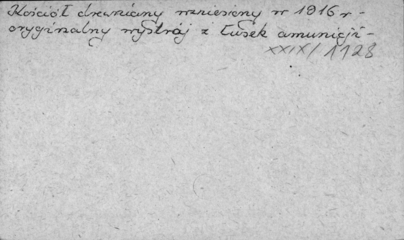 Kościół drewniany wzniesiony w 1916 r -
oryginalny wystrój z łusek amunicji -
XXIX/1128